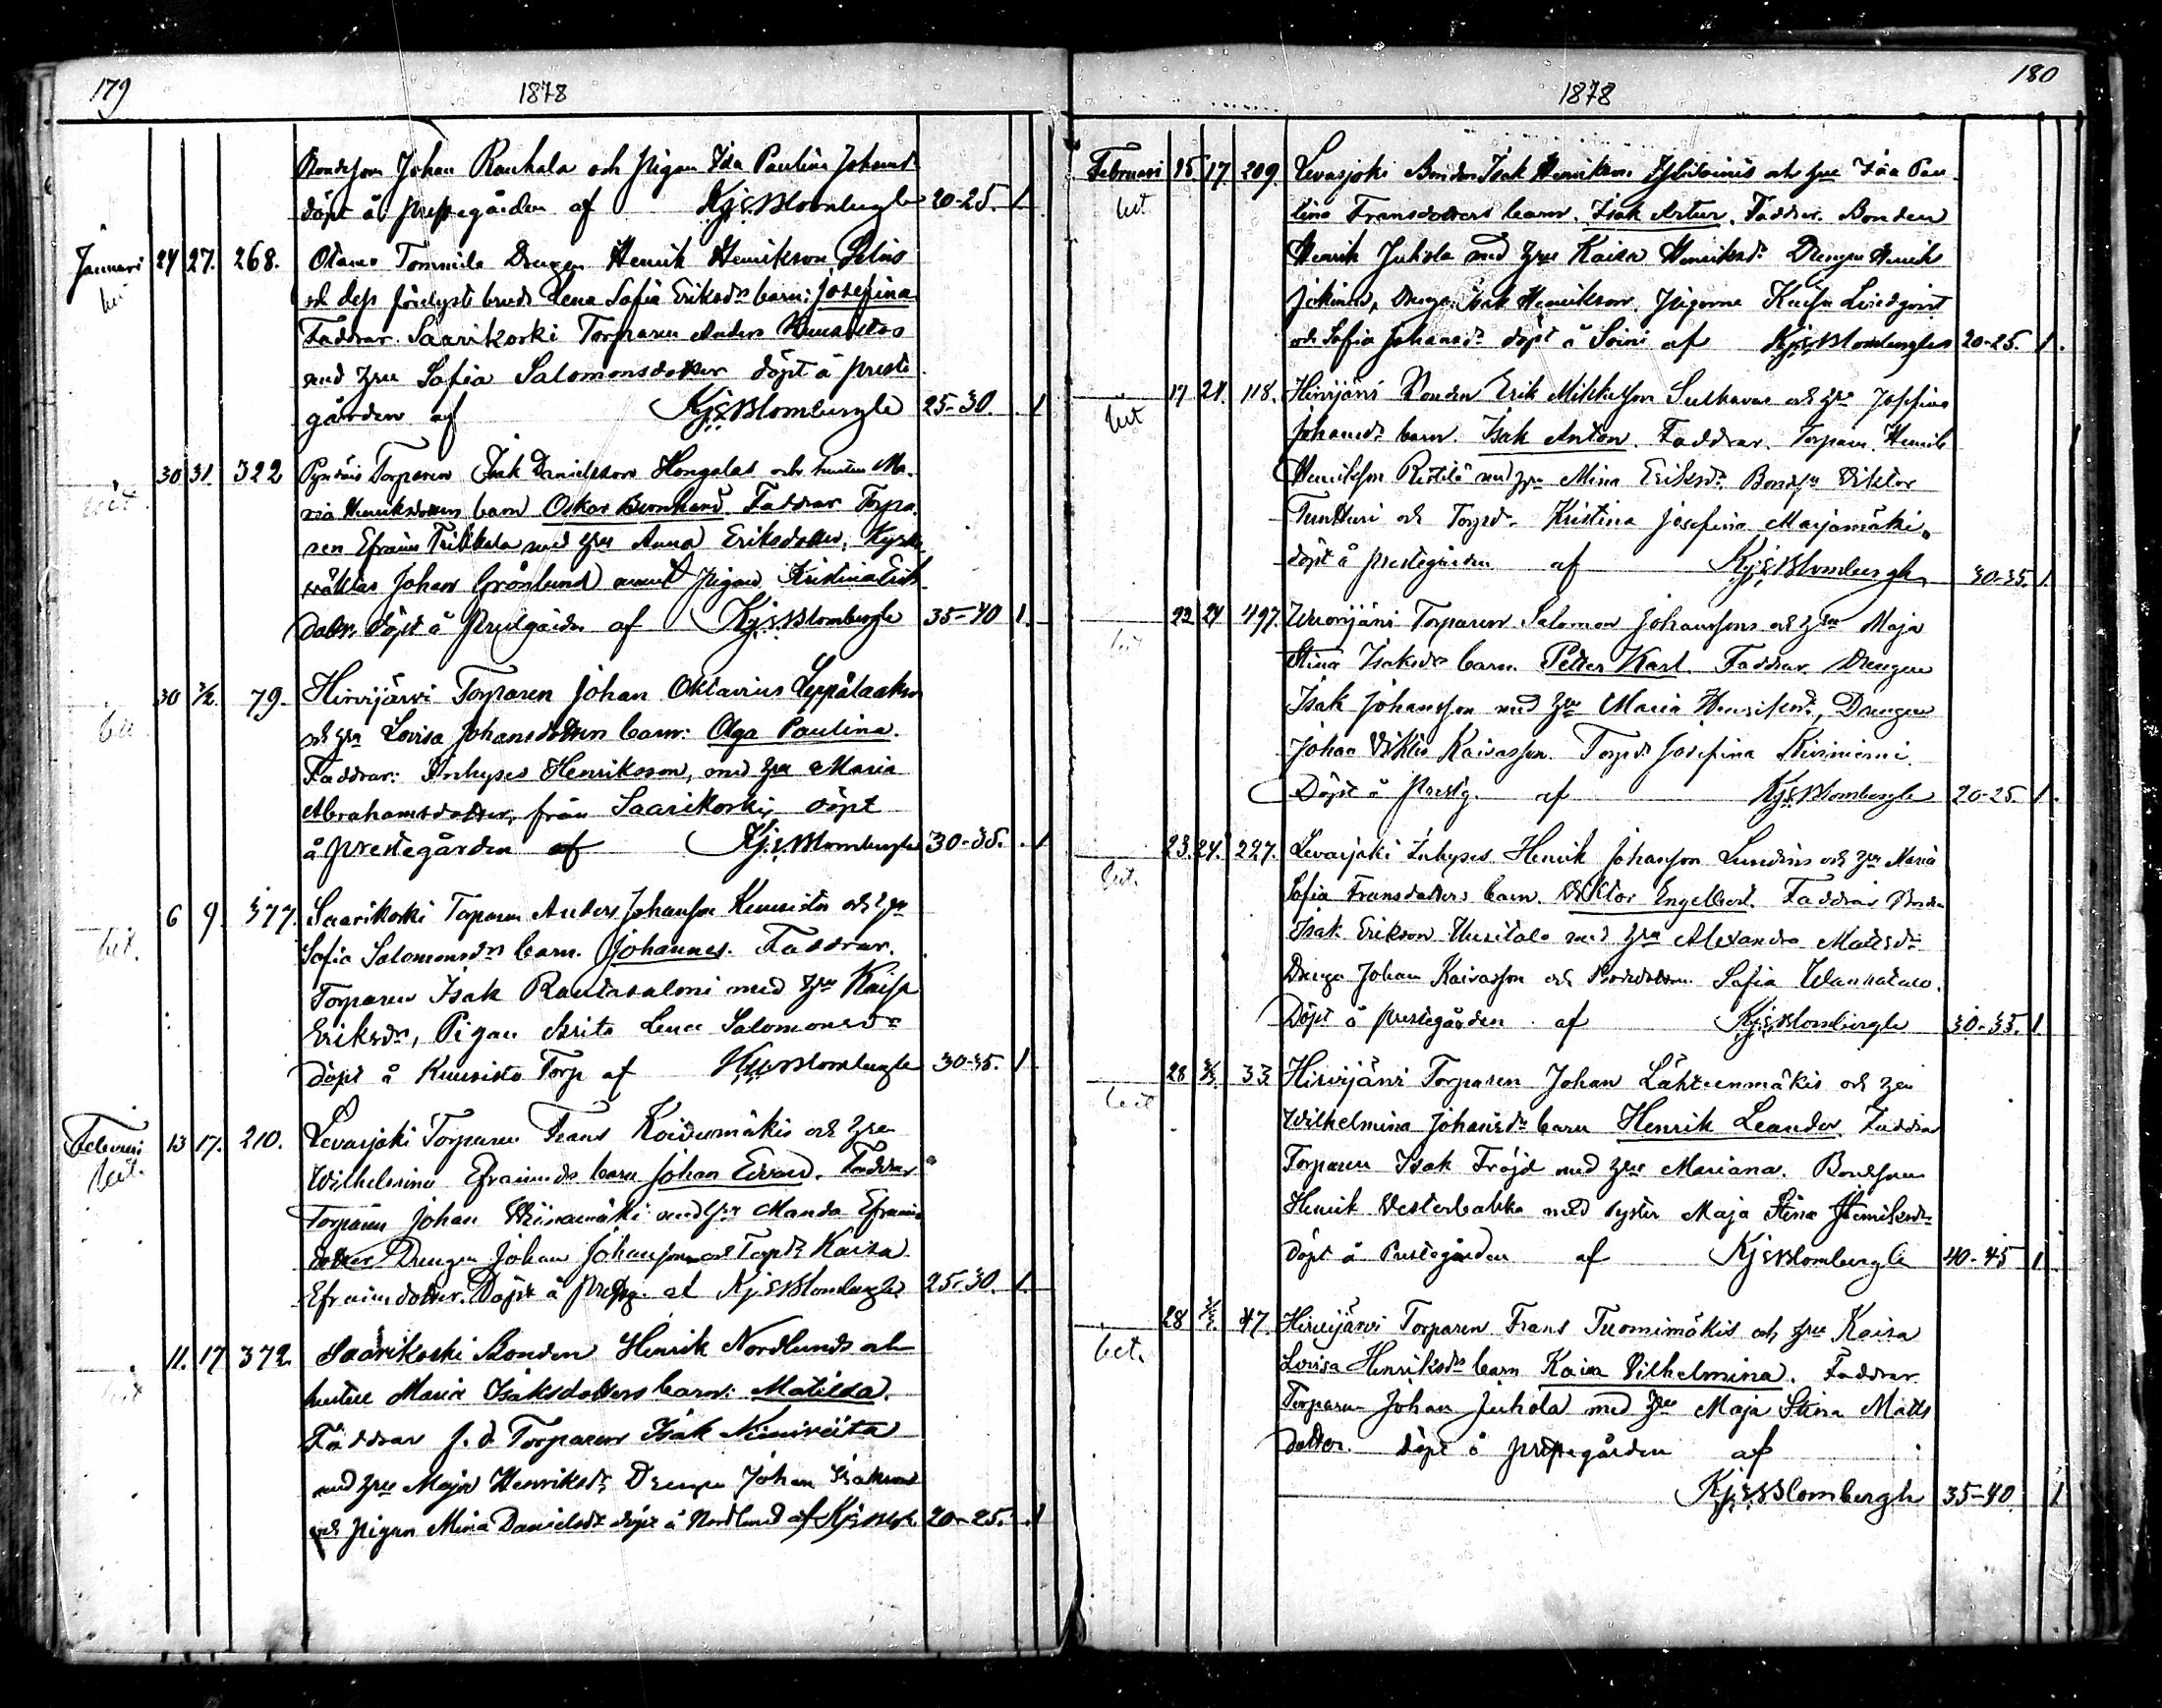 179
1878
Bondeson Johan Rauhala och pigan Ida Paulina Johansdr
döpt å prestegården af Kj: E: Blombergh 20-25. 1.
Januari 24 27. 268. Otamo Tommila Drengen Henrik Henrikson Selins
och dess förelysta brud Lena Sofia Eriksdrs barn: Josefina
Faddrar. Saarikoski Torparen Anders Kuusistos
med hru Sofia Salomonsdotter döpt å preste
gården af Kj: E: Blombergh 25-30. 1
30 31. 322 Torparen Isak Danielsson Hongalas och hustru Ma-
ria Henriksdotters barn Oskar Bernhard. Faddrar Torpa-
ren Efraim med hru Anna Eriksdotter, Kyrko
väktar Johan Grönlund samt pigan Kristina Eriks
dotr. döpt å Prestgården af Kj: E: Blombergh 35-40 1.
30 3/2. 79. Hirvijärvi Torparen Johan Oktavius Leppälaakso
och hru Lovisa Johansdotters barn: Olga Paulina.
Faddrar: Inhyses Henriksson, med hru Maria
Abrahamsdotter, från Saarikoski, döpt
å prestegården af Kj: E: Blombergh 30-35. 1
6 9. 377. Saarikoski Torparen Anders Johansson Kuusisto och hru
Sofia Salomonsdrs barn. Johannes. Faddrar.
Torparen Isak Rautasaloni med hru Kaisa
Eriksdr, Pigan Brita Lena Salomonsdr
döpt å Kuusisto Torp af Kj: E: Blombergh 30-35. 1
Februari 13 17. 210. Levasjoki Torparen Frans Koivumäkis och hru
Wilhelmina Efraimsdrs barn Johan Edvard. Faddrar
Torparen Johan med hru Manda Efraims
dotter Drengen Johan Johansson och Torpdr Kaisa
Efraimsdotter. Döpt å Prestg. af Kj: E: Blombergh 25-30. 1.
11. 17 372. Saarikoski Bonden Henrik Nordlunds och
hustru Maria Isaksdotters barn: Matilda.
Faddrar f. d. Torparen Isak Niiniviita
med hru Maja Henriksdr Drengen Johan Isakson
och pigan Mina Danielsdr döpt å Nordlund af Kj: E: Blgh. 20-25. 1
180
1878
Februari 15 17. 209. Levasjoki Bonden Isak Henrikson och hru Ida Pau-
lina Fransdotters barn. Isak Artur. Faddrar. Bonden
Henrik Juhola med hru Kaisa Henriksdr. Drengen Henrik
Drengen Isak Henrikson. Pigorna Kaisa Lindqvist
och Sofia Johansdr. döpt å Soini af Kj: E: Blombergh 20-25. 1.
17 21. 118. Hirvijärvi Bonden Erik Mikkelson och hru Josefina
Johansdr. barn. Isak Anton. Faddrar. Torparen Henrik
Henrikson Ristilä med hru Mina Eriksdr. Bondson Viktor
Tuntturi och Torpdr. Kristina Josefina Marjamäki.
döpt å prestegården af Kj: E: Blombergh 30-35. 1.
22 24 497. Wuorijärvi Torparen Salomon Johanssons och hru Maja
Stina Isaksdrs barn. Petter Karl. Faddrar. Drengen
Isak Johansson med hru Maria Henriksdr, Drengen
Johan Viktor Kaivasson. Torpdr Josefina Kiviniemi.
Döpt å Prestg. af Kj: E: Blombergh 20-25. 1.
23. 24. 227. Levasjoki Inhyses Henrik Johansson Lundins och hru Maria
Sofia Fransdotters barn. Viktor Engelbert. Faddrar Bonden
Isak Erikson Uusitalo med hru Alexandra Mattsdr
Dreng Johan Kaivasson och Bondedottern Sofia Wanhatalo.
Döpt å prestegården af Kj: E: Blombergh 30-35. 1
28 3/3 33. Hirvijärvi Torparen Johan Lähteenmäkis och hru
Wilhelmina Johansdrs barn Henrik Leander. Faddrar
Torparen Isak Fröjd med hru Mariana. Bondsonen
Henrik Vesterbakka med syster Maja Stina Henriksdr
Döpt å Prestegården af Kj: E: Blombergh 40-45 1
28 3/3. 47. Hirvijärvi Torparen Frans Tuomimäkis och hru Kaisa
Lovisa Henriksdrs barn Kaisa Vilhelmina. Faddrar.
Torparen Johan Juhola med hru Maja Stina Matts
dotter. döpt å prestegården af
Kj: E: Blombergh 35-40. 1